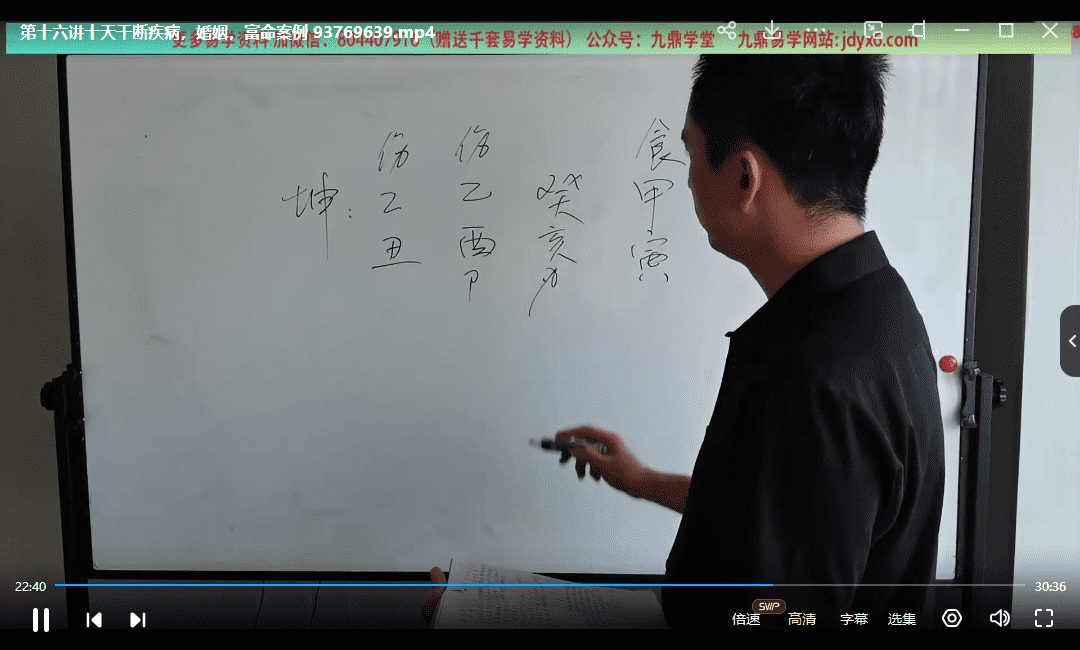 第十六讲十天干断疾病，婚姻，富命案例 93769639.mp4
更多易学资料加微信：804407910（赠送千套易学资料） 公众号：九鼎学堂 九鼎易学网站:jdyx6.com
伤 伤 食
坤： 乙 乙 癸 甲
丑 酉 亥 寅
卩
22:40 30:36
倍速 SVIP 高清 字幕 选集